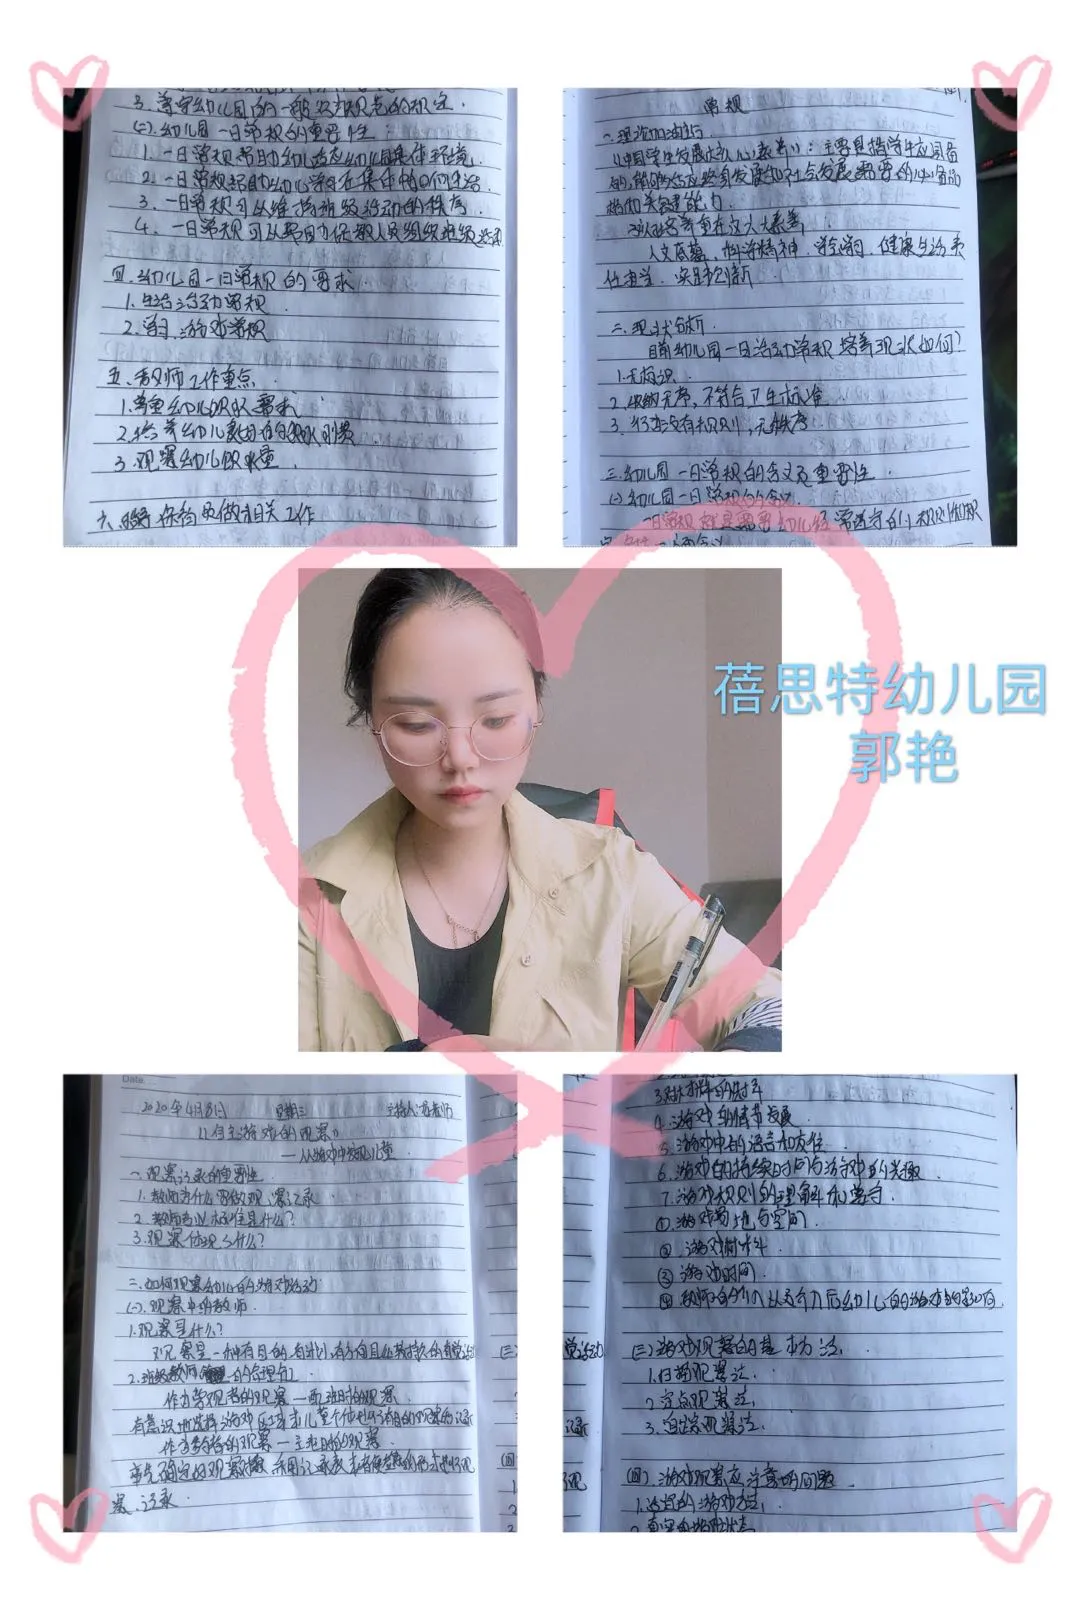 3. 遵守幼儿园的一般
(二).幼儿园一日常规的重要性
1. 一日常规帮助幼儿适应幼儿园集体环境.
2. 一日常规帮助幼儿学习在集体中如何生活.
3. 一日常规可以维持班级活动的秩序.
4. 一日常规可以帮助保教人员组织班级活动
四.幼儿园一日常规的要求.
1.生活活动常规
2.学习.游戏常规
五.教师工作重点
1.尊重幼儿饮水需求
2.培养幼儿主动饮水习惯
3.观察幼儿饮水量.
六. 保育员做相关工作
常规
一.理论加油站
《中国学生发展核心素养》:主要是指学生应具备
的,能够适应终身发展和社会发展需要的必备品
格和关键能力.
核心素养重在这六大素养
人文底蕴,科学精神.学会学习.健康生活.责
任担当.实践创新.
二.现状分析.
目前幼儿园一日活动常规培养现状如何?
1.无意识.
2.收纳无序,不符合卫生标准
3. 没有规则,无秩序
三.幼儿园一日常规的含义及重要性.
(一)幼儿园一日常规的含义.
一日常规就是需要幼儿经常遵守的规则和规
蓓思特幼儿园
郭艳
Date
2020年4月8日 星期三 主持人:
《自主游戏的观察》
—从游戏中发现儿童
一.观察记录的重要性
1.教师为什么要做观察记录
2.教师专业标准是什么?
3.观察体现了什么?
二.如何观察幼儿的游戏活动
(一).观察中的教师.
1.观察是什么?
观察是一种有目的,有计划,
2.班级教师的合理
作为旁观者的观察—配班时的观察.
作为参与者的观察—主班时的观察.
察.记录.
3.对材料的选择
4.游戏的情节发展.
5.游戏中的语言和交往.
6.游戏的持续时间与游戏的兴趣
7.游戏规则的理解和遵守.
①.游戏场地与空间.
②.游戏材料.
③游戏时间.
④教师的介入以及介入后幼儿的游戏
(三).游戏观察的基本方法.
1.扫描观察法.
2.定点观察法.
3.追踪观察法.
(四).游戏观察应注意的问题
1.适宜的游戏